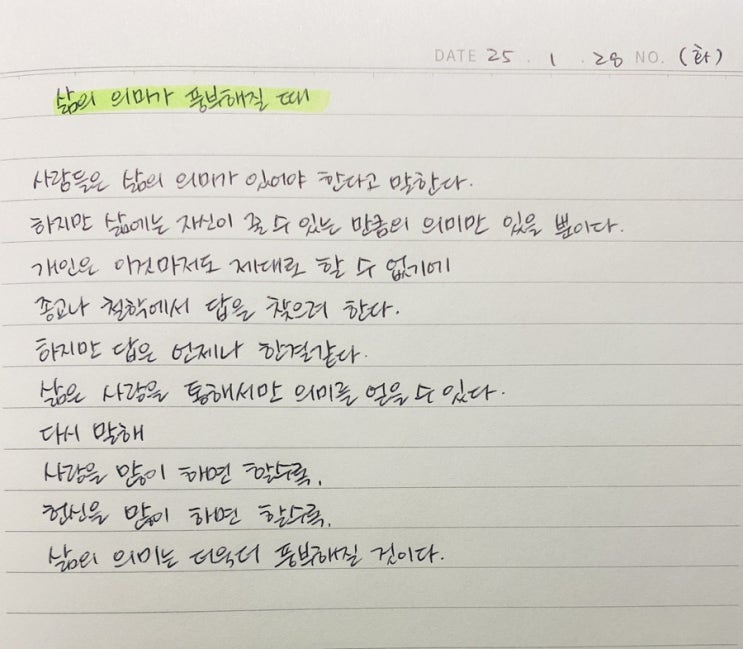 DATE 25 . 1 . 28 NO. (화)
삶의 의미가 풍부해질 때
사람들은 삶의 의미가 있어야 한다고 말한다.
하지만 삶에는 자신이 줄 수 있는 만큼의 의미만 있을 뿐이다.
개인은 이것마저도 제대로 할 수 없기에
종교나 철학에서 답을 찾으려 한다.
하지만 답은 언제나 한결같다.
삶은 사랑을 통해서만 의미를 얻을 수 있다.
다시 말해
사랑을 많이 하면 할수록,
헌신을 많이 하면 할수록,
삶의 의미는 더욱더 풍부해질 것이다.